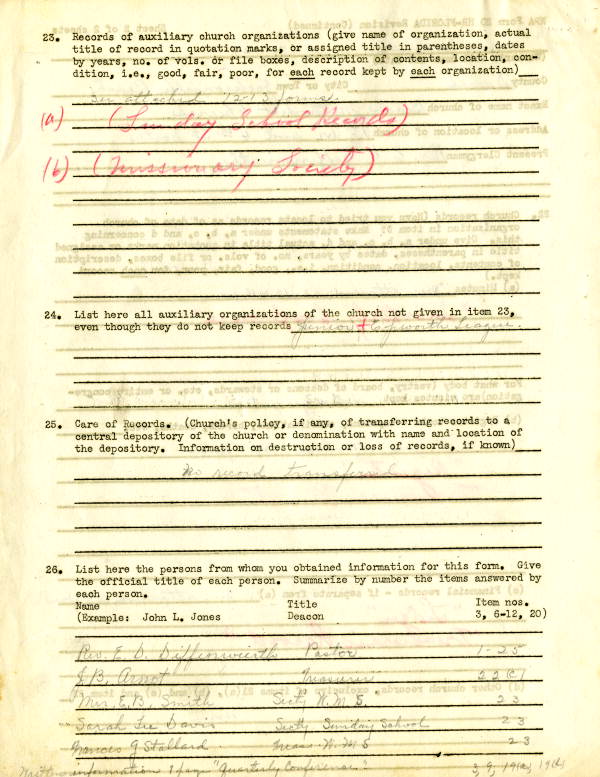 23. Records of auxiliary church organizations (give name of organization, actual
title of record in quotation marks, or assigned title in parentheses, dates
by years, no. of vols. or file boxes, description of contents, location, con-
dition, i.e., good, fair, poor, for each record kept by each organization)
See attached 12-13 forms.
(a) (Sunday School Records)
(b) (Missionary Society)
24. List here all auxiliary organizations of the church not given in item 23,
even though they do not keep records Junior + Epworth League.
25. Care of Records. (Church's policy, if any, of transferring records to a
central depository of the church or denomination with name and location of
the depository. Information on destruction or loss of records, if known)
No record transferred
26. List here the persons from whom you obtained information for this form. Give
the official title of each person. Summarize by number the items answered by
each person.
Name Title Item nos.
(Example: John L. Jones Deacon 3, 6-12, 20)
Rev. E. D. Diffenwierth Pastor 1-25
J. B. Arnot Treasurer 22(c)
Mrs. E. B. Smith Secty W. M. S. 23
Sarah Lee Davis Secty Sunday School 23
Frances G Stallard Treas. W. M S 23
information 1 page "Quarterly Conference" 3, 9, 19(a), 19(d)